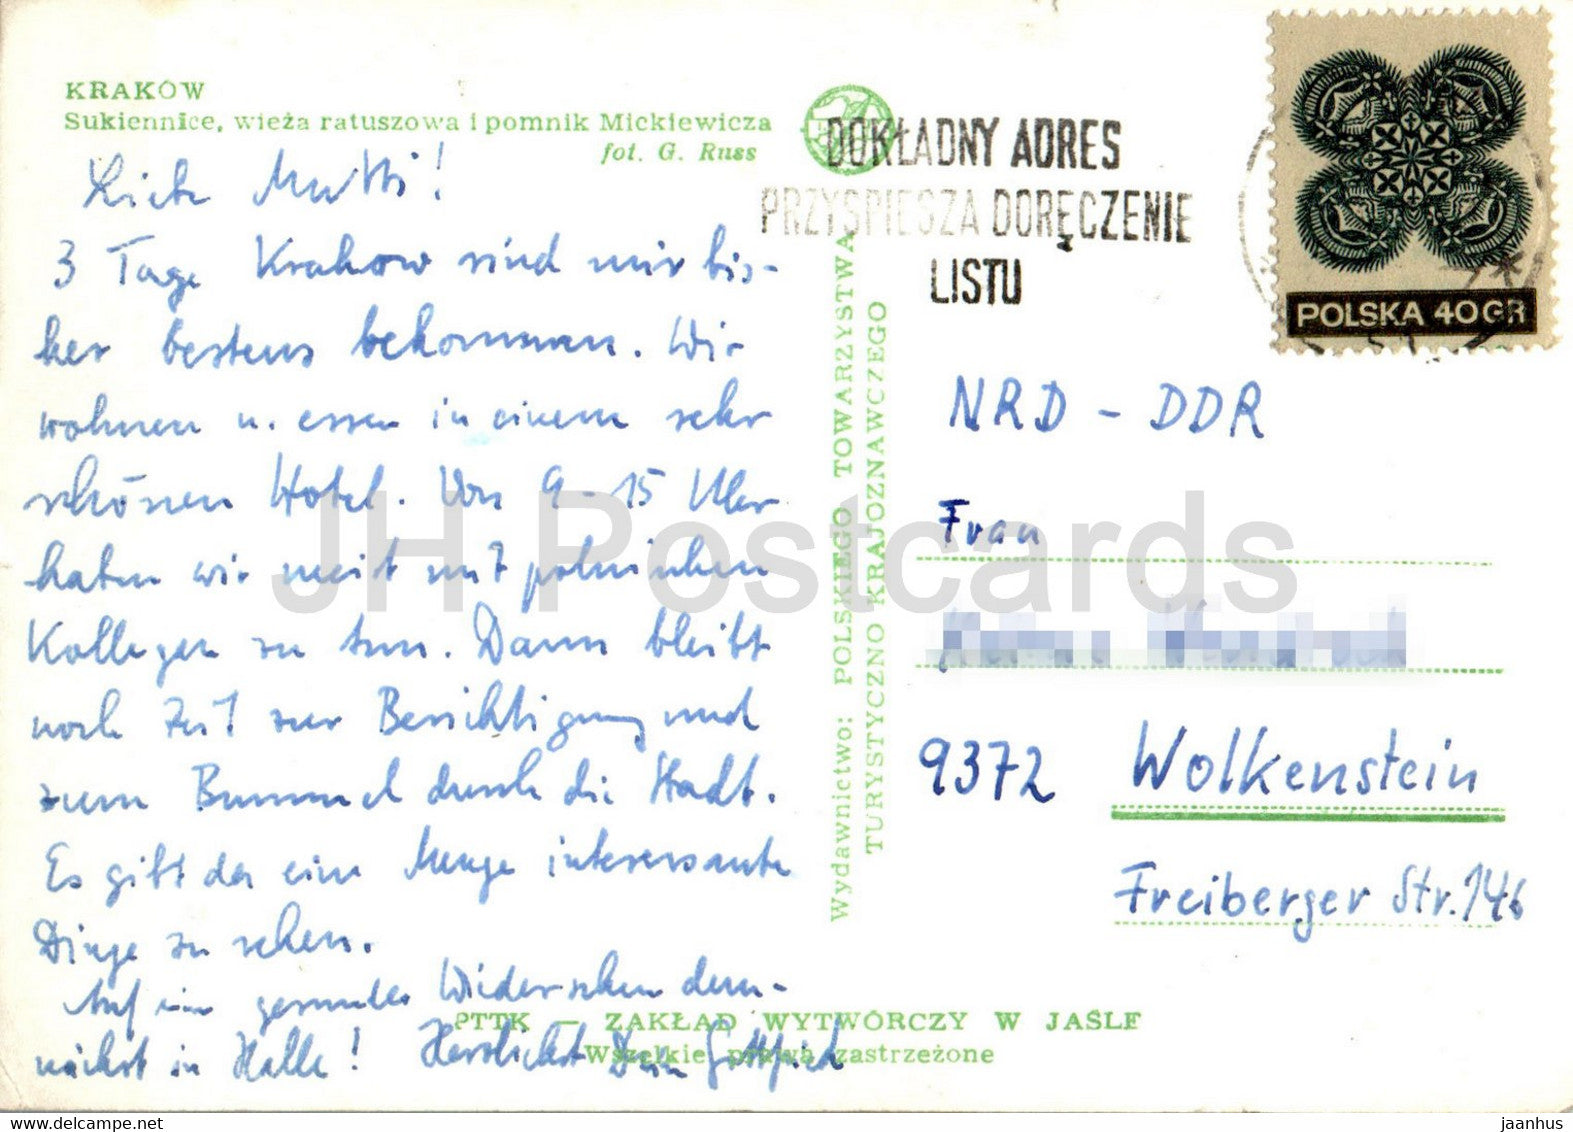 KRAKÓW
Sukiennice, wieża ratuszowa i pomnik Mickiewicza
fot. G. Russ
Liebe Mutti!
3 Tage Krakow sind mir bis-
her bestens bekommen. Wir
wohnen u. essen in einem sehr
schönen Hotel. Von 9-15 Uhr
haben wir meist mit polnischen
Kollegen zu tun. Dann bleibt
noch Zeit zur Besichtigung und
zum Bummel durch die Stadt.
Es gibt da eine Menge interessante
Dinge zu sehen.
Auf ein gesundes Wiedersehen dem-
nächst in Halle! Herzlichst Dein Gottfried
PTTK — ZAKŁAD WYTWÓRCZY W JAŚLE
Wszelkie prawa zastrzeżone
Wydawnictwo: POLSKIEGO TOWARZYSTWA
TURYSTYCZNO KRAJOZNAWCZEGO
DOKŁADNY ADRES
PRZYSPIESZA DORĘCZENIE
LISTU
POLSKA 40GR
NRD - DDR
Frau
9372 Wolkenstein
Freiberger Str. 146
JH Postcards
www.delcampe.net
jaanhus